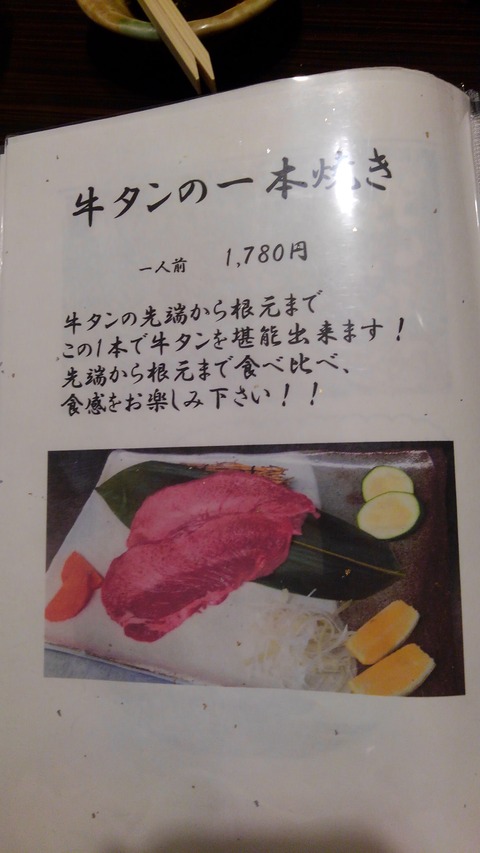 牛タンの一本焼き
一人前 1,780円
牛タンの先端から根元まで
この1本で牛タンを堪能出来ます！
先端から根元まで食べ比べ、
食感をお楽しみ下さい！！